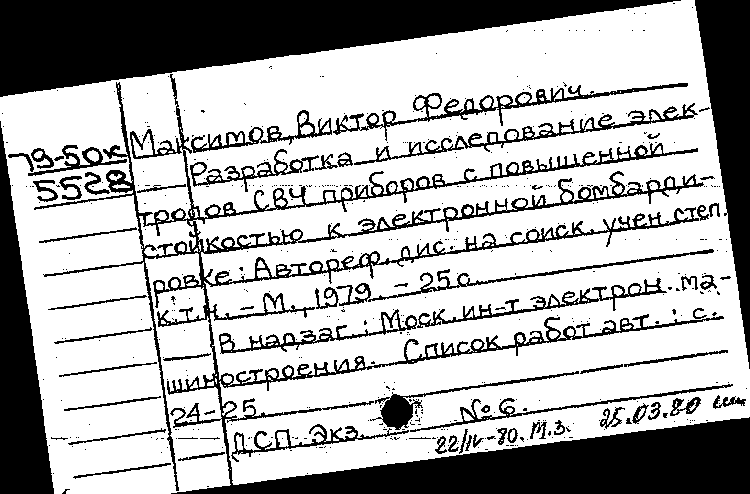 Максимов, Виктор Федорович.
79-50к
5528
Разработка и исследование элек-
тродов СВЧ приборов с повышенной
стойкостью к электронной бомбарди-
ровке: Автореф. дис. на соиск. учен. степ.
к.т.н. - М., 1979. - 25 с.
В надзаг: Моск. ин-т электрон. ма-
шиностроения. Список работ авт.: с.
24-25.
ДСП. Экз. № 6.
22/IV-80. М.З. 25.03.80